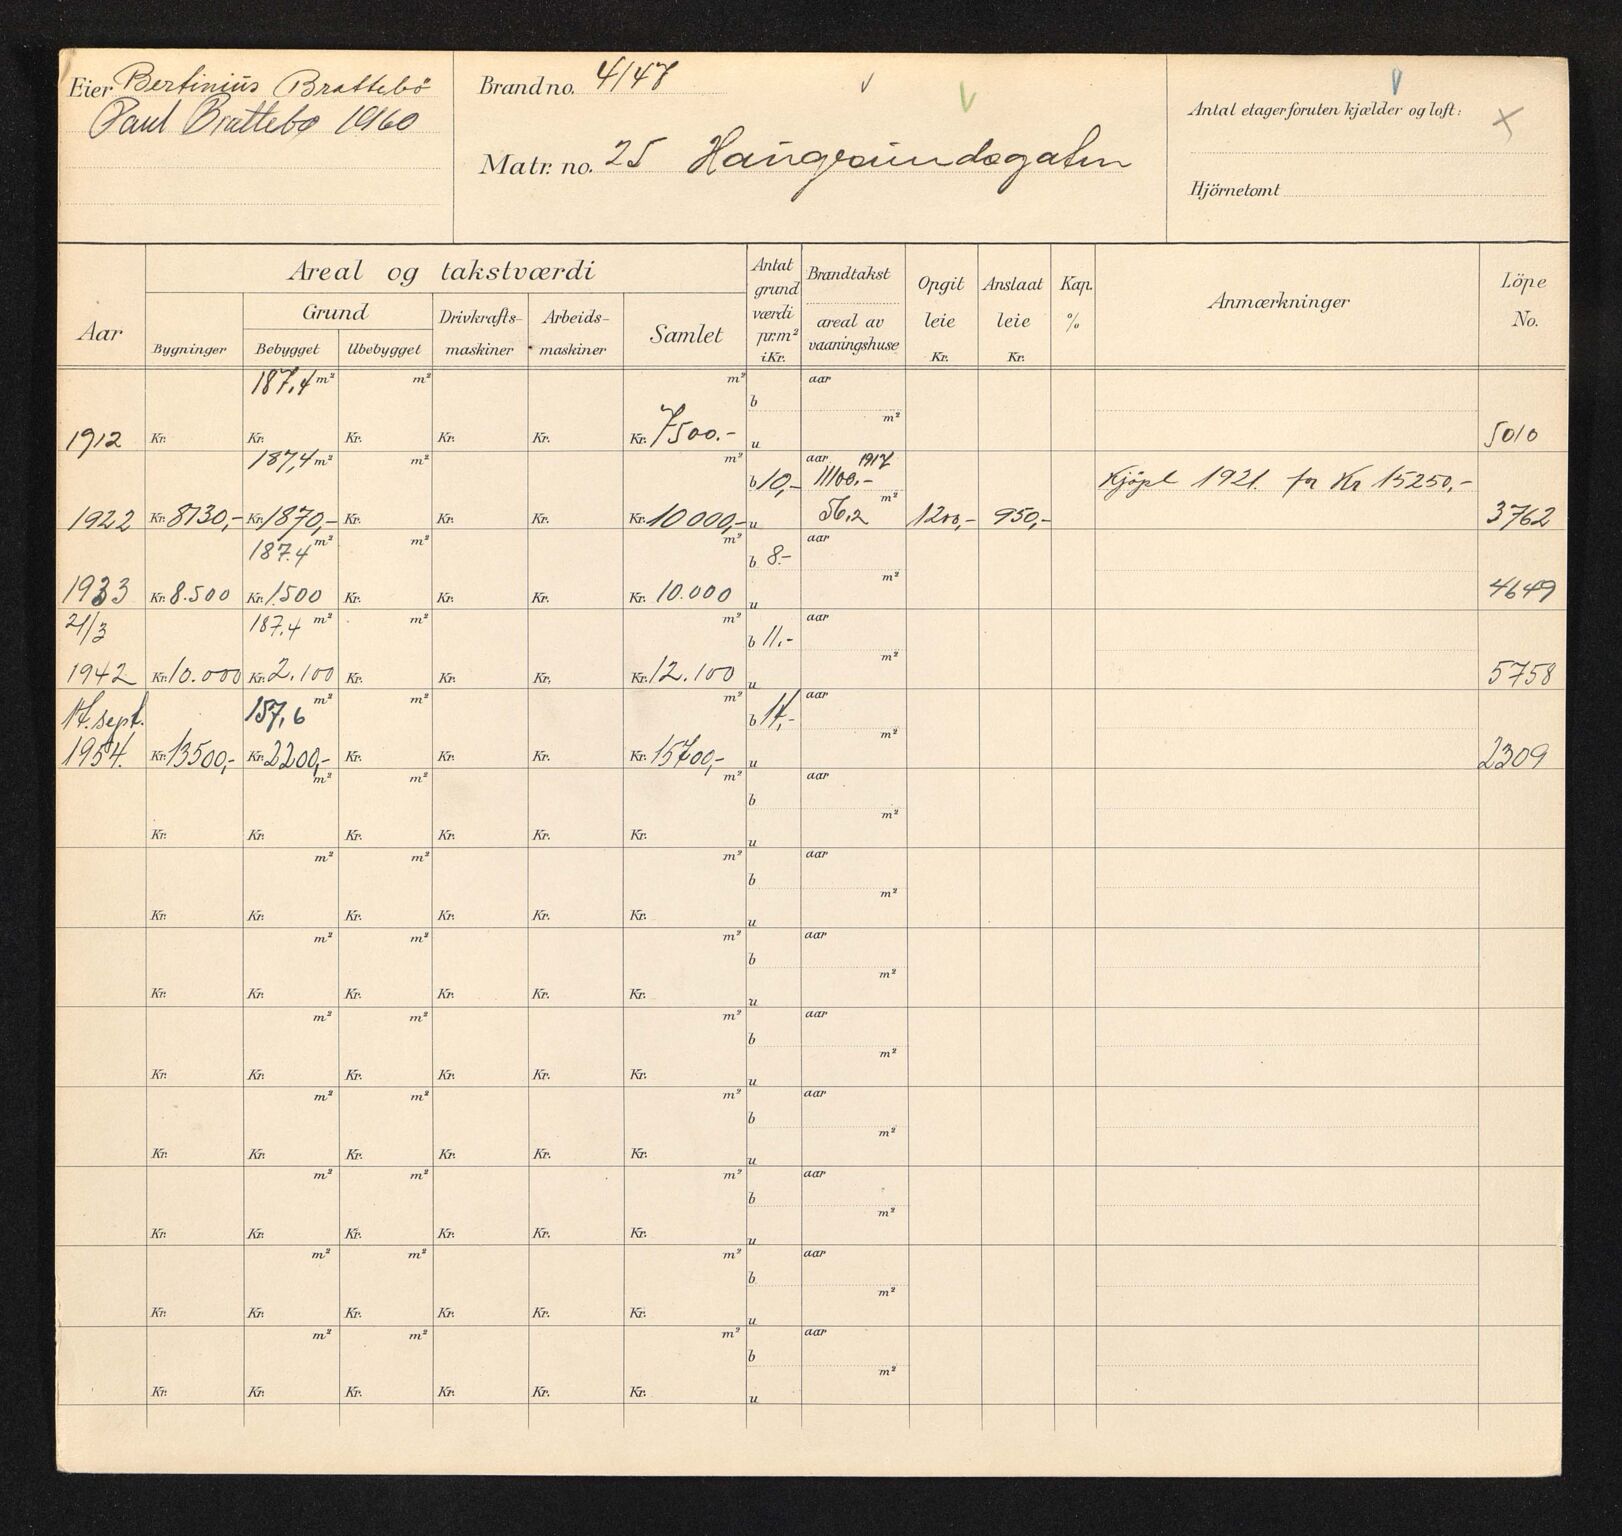 Eier Bertinius Brattebö
Paul Brattebo 1960
Brand no. 4147
Matr. no. 25 Haugesundsgaten
Antal etager foruten kjælder og loft:
Hjörnetomt
Aar
Areal og takstværdi
Grund
Bygninger
Bebygget
Ubebygget
Drivkrafts-
maskiner
Arbeids-
maskiner
Samlet
Antat
grund
værdi
pr. m²
i Kr.
Brandtakst
areal av
vaaningshuse
Opgit
leie
Kr.
Anslaat
leie
Kr.
Kap.
%
Anmærkninger
Löpe
No.
187,4 m² m² m² b aar
m²
1912 Kr. Kr. Kr. Kr. Kr. Kr. 7500.- u 5010
187,4 m² m² m² b 10,- aar 1917
11100,- Kjöpt 1921. for Kr 15250,-
m²
1922 Kr. 8130,- Kr. 1870,- Kr. Kr. Kr. Kr. 10000,- u 56,2 1200,- 950,- 3762
187.4 m² m² m² b 8.- aar
m²
1933 Kr. 8.500 Kr. 1500 Kr. Kr. Kr. Kr. 10.000 u 4649
21/3 187.4 m² m² m² b 11.- aar
m²
1942 Kr. 10.000 Kr. 2.100 Kr. Kr. Kr. Kr. 12.100 u 5758
sept. 157,6 m² m² m² b 14,- aar
m²
1954. Kr. 13500,- Kr. 2200,- Kr. Kr. Kr. Kr. 15700,- u 2309
m² m² m² b aar
m²
Kr. Kr. Kr. Kr. Kr. Kr. u
m² m² m² b aar
m²
Kr. Kr. Kr. Kr. Kr. Kr. u
m² m² m² b aar
m²
Kr. Kr. Kr. Kr. Kr. Kr. u
m² m² m² b aar
m²
Kr. Kr. Kr. Kr. Kr. Kr. u
m² m² m² b aar
m²
Kr. Kr. Kr. Kr. Kr. Kr. u
m² m² m² b aar
m²
Kr. Kr. Kr. Kr. Kr. Kr. u
m² m² m² b aar
m²
Kr. Kr. Kr. Kr. Kr. Kr. u
m² m² m² b aar
m²
Kr. Kr. Kr. Kr. Kr. Kr. u